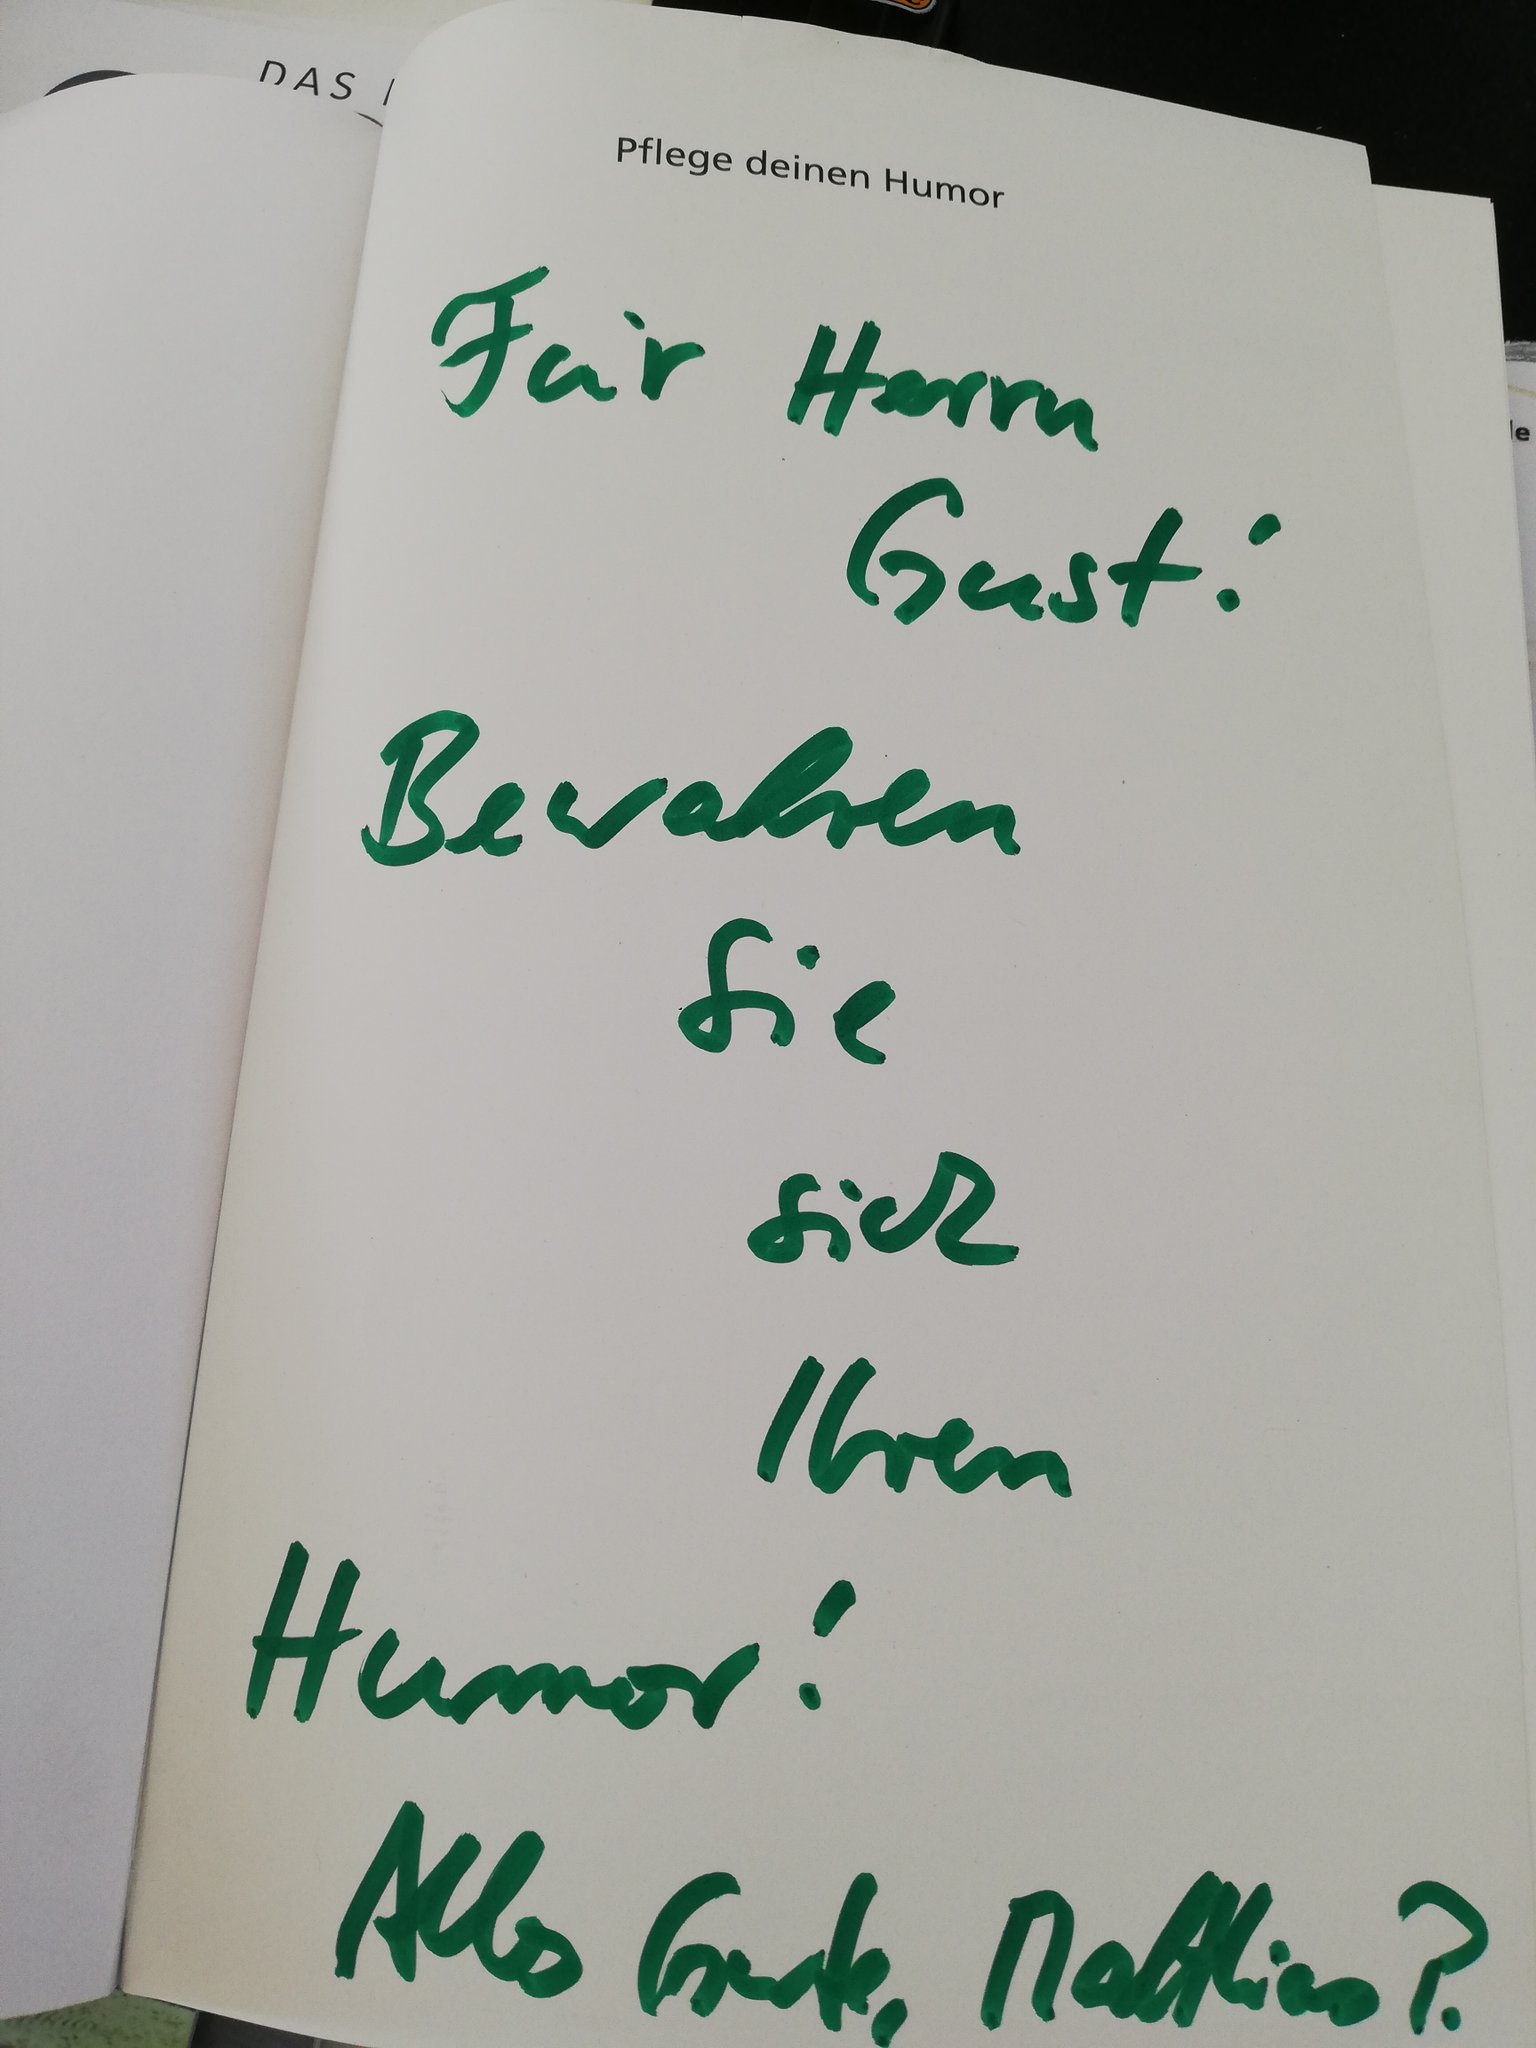 DAS
Pflege deinen Humor
Für Herrn
Gust!
Bewahren
Sie
sich
Ihren
Humor!
Alles Gute, Matthias P.